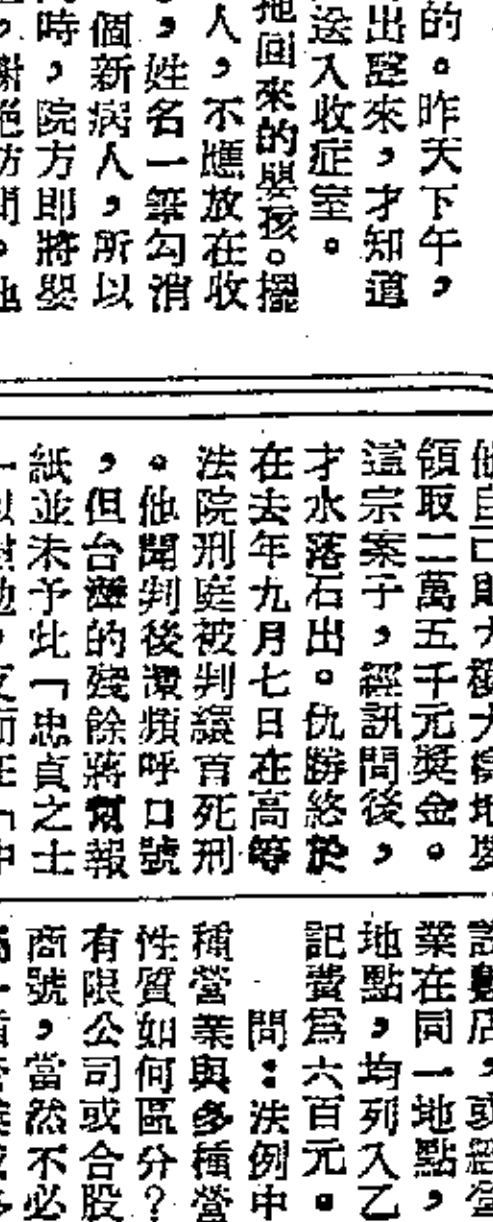 的。昨天下午，
出聲來，才知道
送入收症室。
回來的嬰孩。擺
人，不應放在收
，姓名一筆勾消
個新病人，所以
時，院方即將嬰
領取二萬五千元獎金。
這宗案子，經訊問後，
才水落石出。仇勝終於
在去年九月七日在高等
法院刑庭被判繯首死刑
。他聞判後還頻呼口號
，但台灣的殘餘將幫報
紙並未予此「忠貞之士
業在同一地點，
地點，均列入乙
記費爲六百元。
問：法例中
種營業與多種營
性質如何區分？
有限公司或合股
商號，當然不必